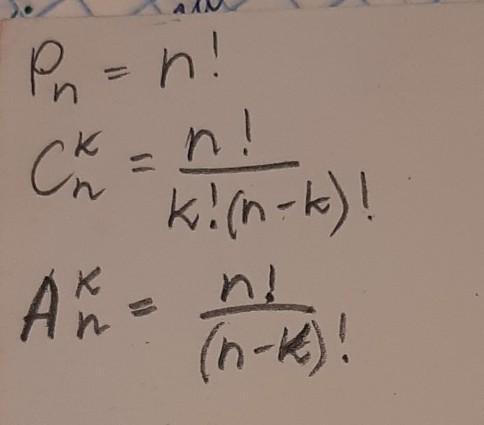 Pₙ = n!
Cₙᵏ = n! / k!(n-k)!
Aₙᵏ = n! / (n-k)!